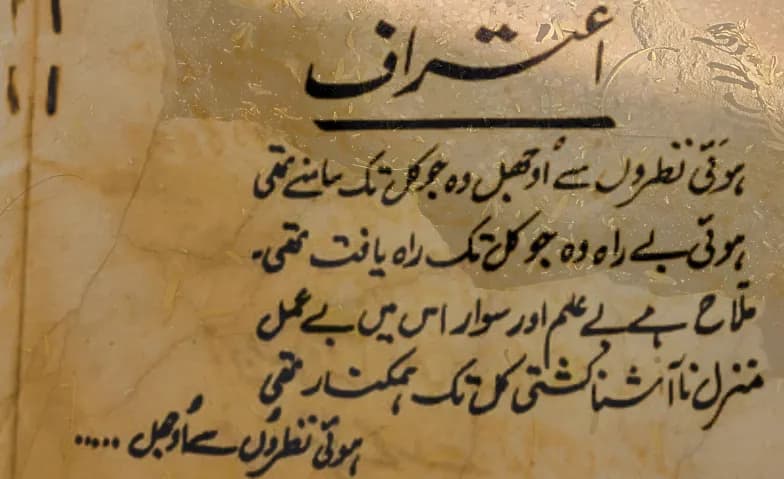 اعتراف
ہوئی نظروں سے اُوجھل وہ جو کل تک سامنے تھی
ہوئی بے راہ وہ جو کل تک راہ یافت تھی۔
ملاح ہے بے علم اور سوار اس میں بے عمل
منزل ناآشنا کشتی کل تک ہمکنار تھی
ہوئی نظروں سے اُوجھل .....